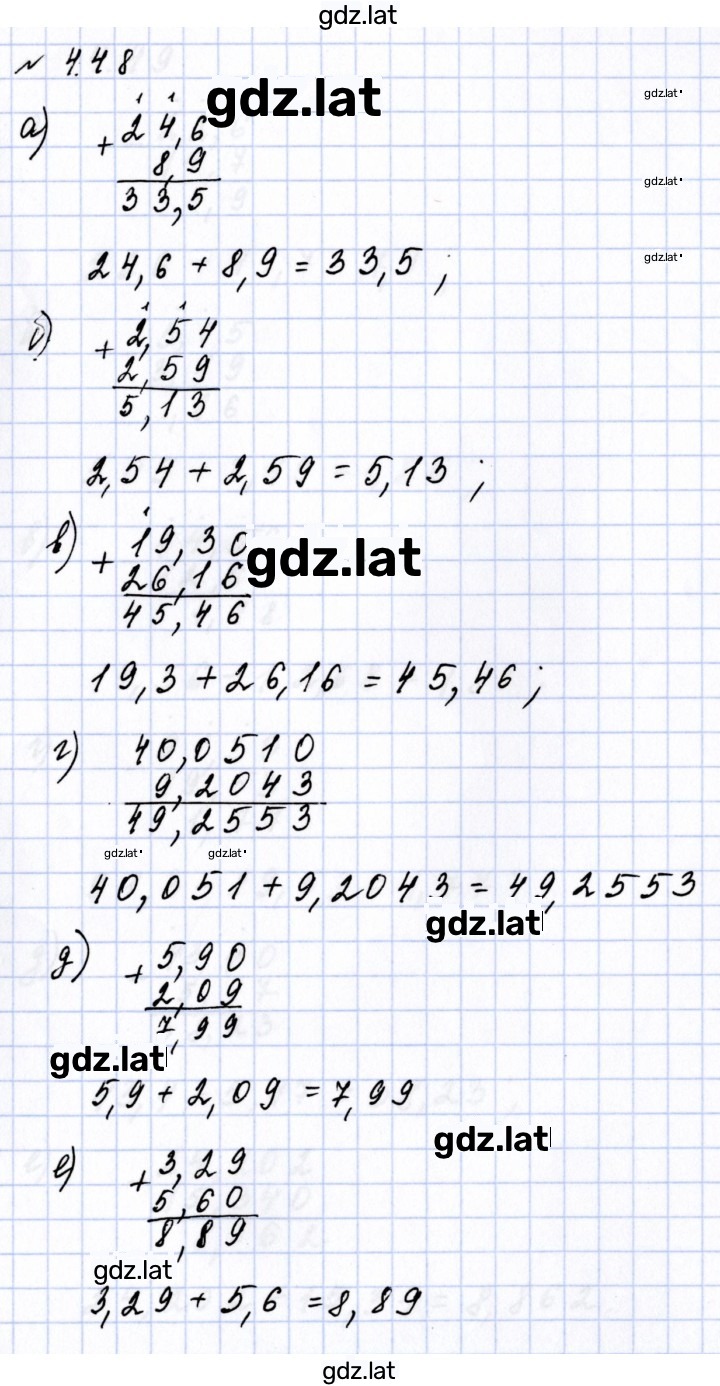 gdz.lat
№ 4.48
gdz.lat
gdz.lat
а) + 24,6
8,9
33,5
gdz.lat
24,6 + 8,9 = 33,5 ;
gdz.lat
б) + 2,54
2,59
5,13
2,54 + 2,59 = 5,13 ;
в) + 19,30
26,16
45,46
gdz.lat
19,3 + 26,16 = 45,46 ;
г) 40,0510
9,2043
49,2553
gdz.lat gdz.lat
40,051 + 9,2043 = 49,2553
gdz.lat
д) + 5,90
2,09
7,99
gdz.lat
5,9 + 2,09 = 7,99
gdz.lat
е) + 3,29
5,60
8,89
gdz.lat
3,29 + 5,6 = 8,89
gdz.lat